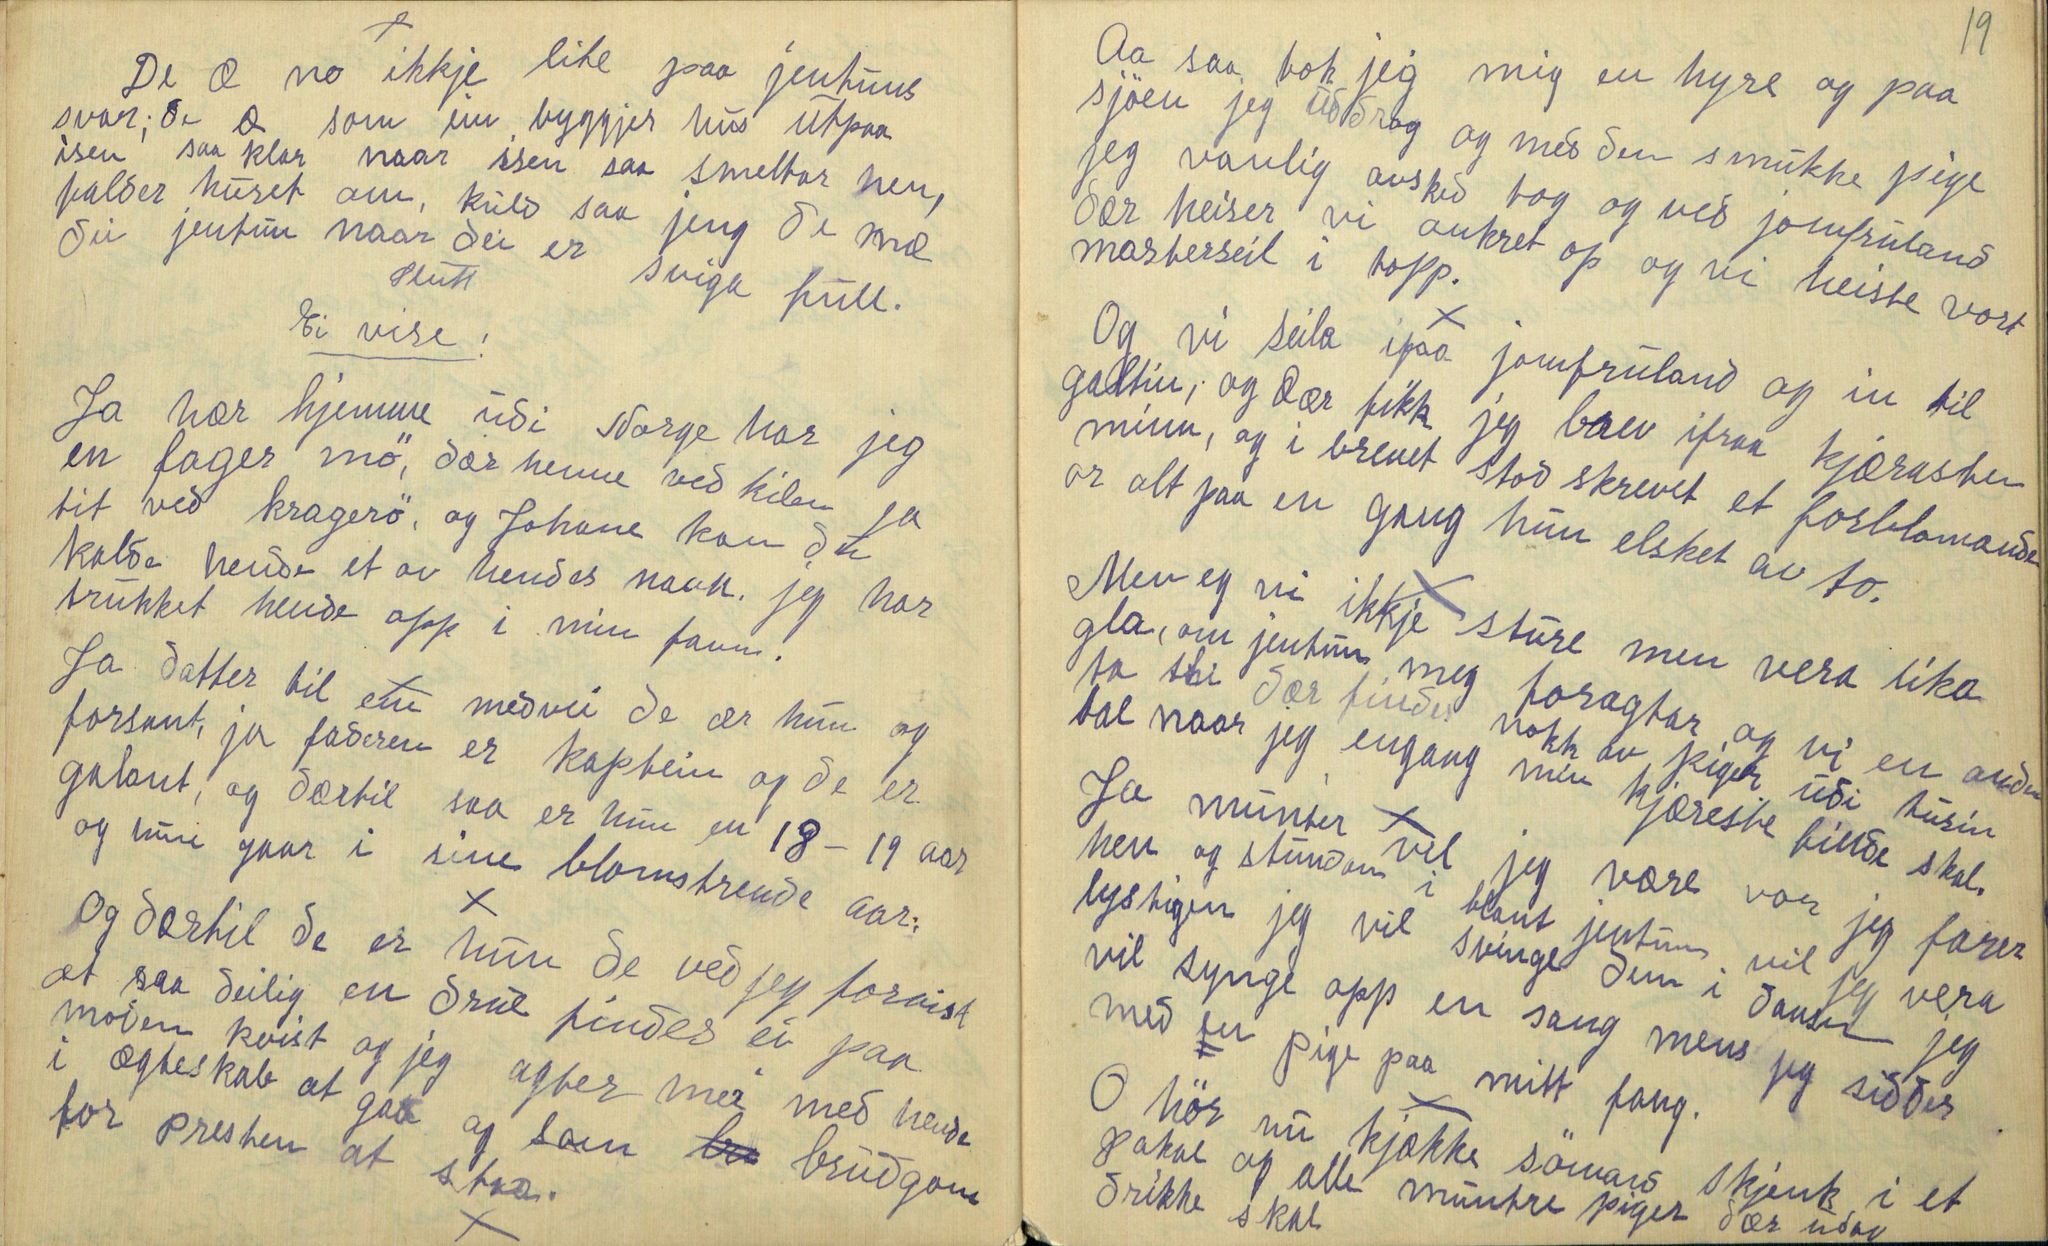 De æ no ikkje lite paa jentuns
svar; de æ som ein byggjer hus utpaa
isen saa klar naar isen saa smeltar hen,
falder huset om, kuld saa jeng de mæ
dei jentun naar dei er sviga full.
Slutt
Ei vise!
Ja hær hjemme udi Norge har jeg
en fager mö, dær henne ved kilen ja
tit ved kragerö, og Johane kan du
kalde hende et av hendes navn. jeg har
trukket hende opp i min favn.
Ja datter til ein medvei de ær hun og
forsant, ja faderen er kaptein og de er
galant, og dærtil saa er hun en 18-19 aar
og hun gaar i sine blomstrende aar:
Og dærtil de er hun de ved jeg forvist
at saa deilig en drue findes ei paa
moden kvist og jeg agter mei med hende
i ægteskab at gaa og som brudgom
for presten at staa.
19
Aa saa tok jeg mig en hyre og paa
sjöen jeg uddrog og med den smukke pige
jeg vanlig avsked tog og ved jomfruland
dær heiser vi ankret op og vi heiste vort
masterseil i topp.
Og vi seila ipaa jomfruland og in til
galtin, og dær fikk jeg brev ifraa kjærasten
minn, og i brevet stod skrevet et forblomande
or alt paa en gang hun elsket av to.
Men eg vi ikkje sture men vera lika
gla, om jentun meg foragtar og vi en anden
ta thi dær findes nokk av piger udi tusin
tal naar jeg engang min kjæreste finde skal.
Ja munter vil jeg være vor jeg farer
hen og stundom i blant jentun vil jeg vera
lystigen jeg vil svinge dem i dansen jeg
vil synge opp en sang mens jeg sidder
med en pige paa mitt fang.
O hör nu kjække sömand skjenk i et
pokal og alle muntre piger dær udav
drikke skal